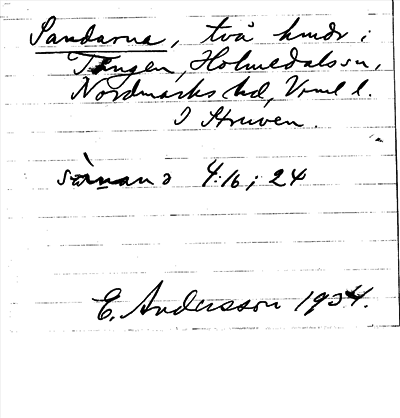 Sandarna, två hmdr i
Tången, Holmedals sn,
Nordmarks hd, Vrml l.
I Struven.
sànana 4:16; 24
E. Andersson 1934.